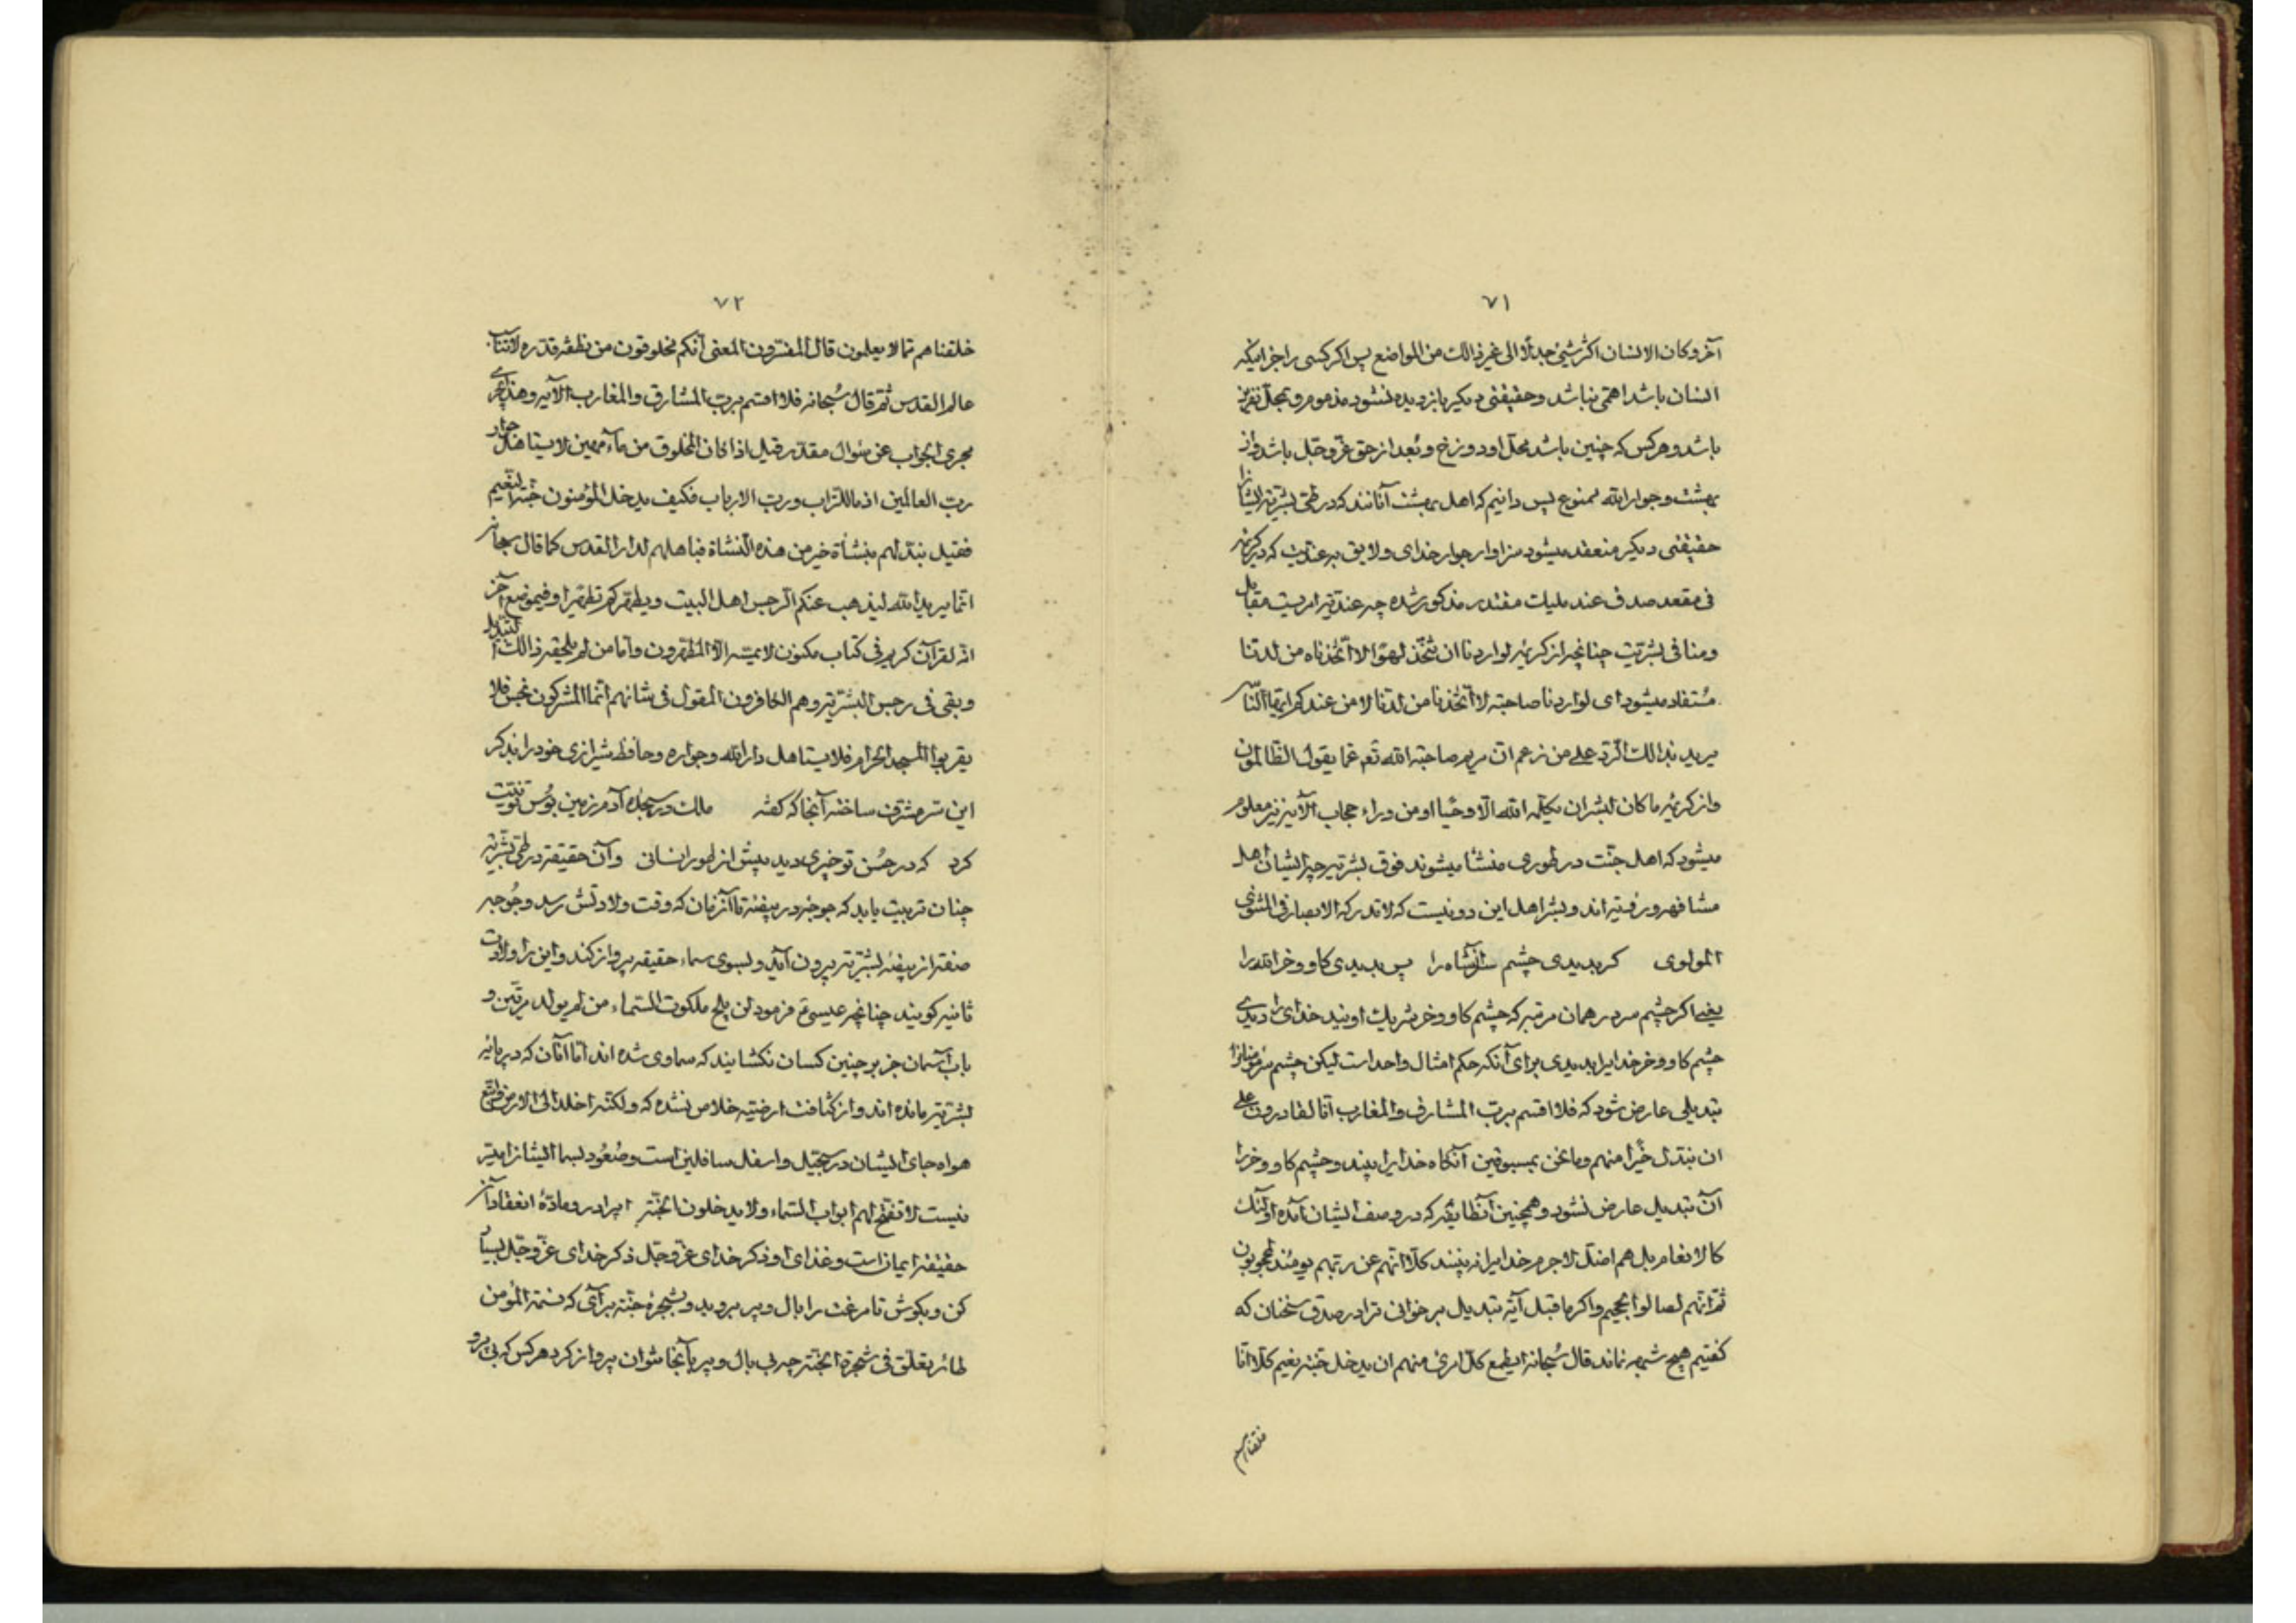 ۷۱
آخر و کان الانسان اکثر شیئ جدلًا الی غیر ذالک من المواضع پس اکر کسی را جز اینکه
انسان باشد اهمّی نباشد و حقیقتی دیکیر بازدیده نشود مذموم و بمحلّ نفرین
باشد و هرکس که چنین باشد محلّ او دوزخ و بُعد از حق عزّ و جلّ باشد و از
بهشت و جوار الله ممنوع پس دانیم که اهل بهشت آنانند که در طیّ بشریّة ایشانرا
حقیقتی دیکر منعقد میشود سزاوار جوار خدای و لایق به عندیّت که در کریمه
فی مقعد صدق عند ملیک مقتدر مذکور شده چه عندیّه امریست مقابل
و منافی بشریّت چنانچه از کریمهٔ لو اردنا ان نتّخذ لهوًا لا اتّخذناه من لدنّا
مُستفاد میشود ای لو اردنا صاحبة لا اتّخذنا من لدنا لا من عندکم ایّها النّاس
یرید بذالک الرّد علی من زعم انّ مریم صاحبة الله تع عمّا یقول الظالمون
و از کریمهٔ ما کان لبشر ان یکلّمه الله الّا وحیًا او من وراء حجاب الآیة نیز معلوم
میشود که اهل جنّت در طوری منشأ میشوند فوق بشریّة چه ایشان اهل
مشافهه و رؤیة اند و بشر اهل این دو نیست که لا تدرکه الابصار فی المثنوی
المولوی کر بدیدی چشم سر آنشاه را پس بدیدی کاو و خر الله را
یعنی اکر چشم سر در همان مرتبه که چشم کاو و خر شریک اویند خدای را دیدی
چشم کاو و خر خدایرا بدیدی برای آنکه حکم امثال واحد است لیکن چشم سر مؤمنانرا
تبدیلی عارض شود که فلا اقسم بربّ المشارق و المغارب انّا لقادرون علی
ان نبدّل خیرًا منهم و ما نحن بمسبوقین آنکاه خدایرا بیند و چشم کاو و خر را
آن تبدیل عارض نشود و همچنین آنطایفه که در وصف ایشان آمده اولٓئک
کالانعام بل هم اضلّ لا جرم خدایرا نه بینند کلّا انّهم عن ربّهم یومئذ لمحجوبون
ثمّ انّهم لصالوا الجحیم و اکر ما قبل آیهٔ تبدیل برخوانی ترا در صدق سخنان که
کفتیم هیچ شبهه نماند قال سُبحانه ایطمع کلّ امرئ منهم ان یدخل جنّة نعیم کلّا انّا
خلقناهم
۷۲
خلقناهم ممّا لا یعلمون قال المفسّرون المعنی انّکم مخلوقون من نطفة قذره لا تناسب
عالم القدس ثمّ قال سُبحانه فلا اقسم بربّ المشارق و المغارب الآیه و هذا یجری
مجری الجواب عن سُوال مقدّر قیل اذا کان المخلوق من ماء مهین لا یستاهل جوار
ربّ العالمین اذ ما للتراب و ربّ الارباب فکیف یدخل المؤمنون جنّة النّعیم
فقیل نبدّلهم بنشأة خیر من هذه النّشأة فیاهلهم لدار القدس کما قال سبحانه
انّما یرید الله لیذهب عنکم الرّجس اهل البیت و یطهّرکم تطهیرا و فی موضع آخر
انّه لقرآن کریم فی کتاب مکنون لا یمسّه الّا المطهّرون و امّا من لم یلحقه ذالک التبدیل
و بقی فی رجس البشریّة و هم الکافرون المقول فی شانهم انّما المشرکون نجس فلا
یقربوا المسجد الحرام فلا یستاهل دار الله و جواره و حافظ شیرازی خود را بذکر
این سرّ مشرّف ساخته آنجا که کفته ملک در سجدهٔ آدم زمین بوُس تو نیّت
کرد که در حُسن تو چیزی دید بیش از طور انسانی و آن حقیقة در طیّ بشریّة
چنان تربیت یابد که جوجه در بیضه تا آنزمان که وقت ولادتش رسد و جُوجه
صفة از بیضهٔ بشریّة بیرون آید و بسوی سماء حقیقة پرواز کند و این را ولادت
ثانیه کویند چنانچه عیسی ع فرمود لن یلج ملکوت السّماء من لم یولد مرّتین و
باب آسمان جز بر چنین کسان نکشایند که سماوی شده اند امّا آنان که در
بشریّة مانده اند و از کثافت ارضیّه خلاص نشده که و لکنّه اخلد الی الارض و اتّبع
هواه جای ایشان در سجّیل و اسفل سافلین است و صُعُود بسما ایشانرا میسّر
نیست لا تفتّح لهم ابواب السّماء و لا یدخلون الجنّة ایرادر و مادّهٔ انعقاد آن
حقیقة ایمان است و غذای او ذکر خدای عزّ و جلّ ذکر خدای عزّ و جلّ بسیار
کن و بکوش تا مرغت را بال و پر بروید و بشجرهٔ جنّة برآی که نسمة المؤمن
طائر یعلّق فی شجرة الجنّة چه بی بال و پر بآنجا نتوان پرواز کرد هر کس که بی پر و